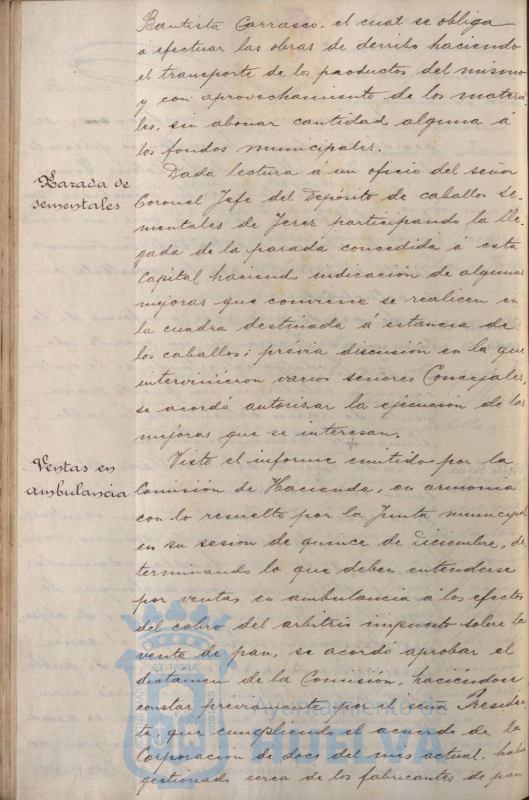 Bautista Carrasco. el cual se obliga
á efectuar las obras de derribo haciendo
el transporte de los productos del mismo
y con aprovechamiento de los materia
les, sin abonar cantidad alguna á
los fondos municipales.
Parada de
sementales
Dada lectura á un oficio del señor
Coronel Jefe del Depósito de caballos se-
mentales de Jerez participando la lle-
gada de la parada concedida á esta
Capital haciendo indicación de algunas
mejoras que conviene se realicen en
la cuadra destinada á estancia de
los caballos; prévia discusión en la que
intervinieron varios señores Concejales,
se acordó autorizar la ejecución de las
mejoras que se interesan.
Ventas en
ambulancia
Visto el informe emitido por la
Comisión de Hacienda, en armonia
con lo resuelto por la Junta municipal
en su sesion de quince de Diciembre, de
terminando lo que deben entenderse
por ventas en ambulancia á los efectos
del cobro del arbitrio impuesto sobre la
venta de pan, se acordó aprobar el
dictamen de la Comisión, haciéndose
constar préviamente por el señor Presiden
te, que cumpliendo el acuerdo de la
Corporacion de doce del mes actual, había
gestionado cerca de los fabricantes de pan
Ayuntamiento de
HUELVA